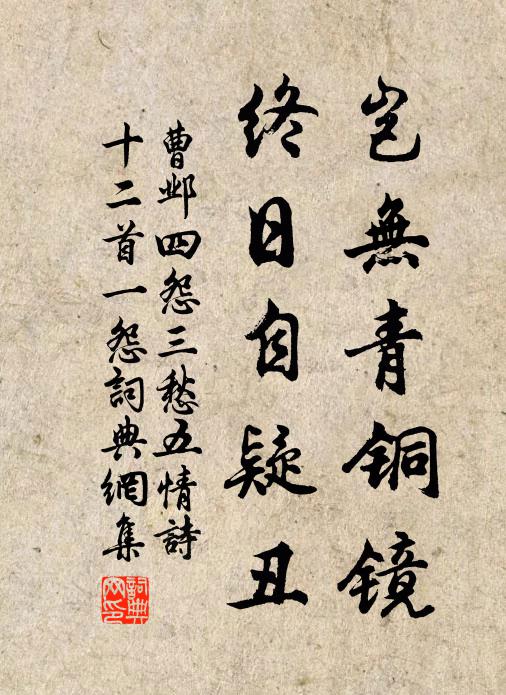 岂無青铜镜
终日自疑丑
曹邺四怨三愁五情詩
十二首一怨詞典網集
詞典網印